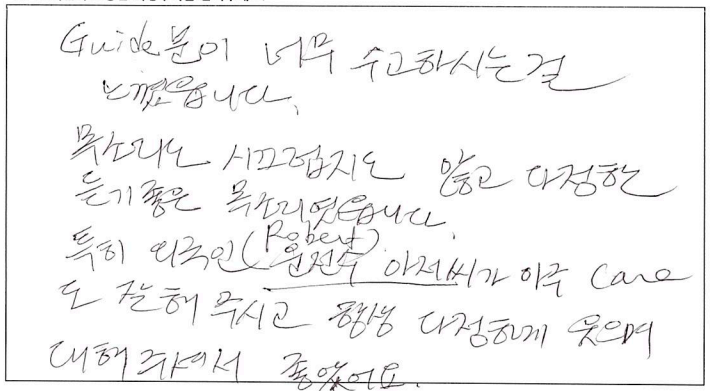 Guide분이 너무 수고하시는걸
느꼈읍니다.
목소리도 시끄럽지도 않고 다정한
듣기좋은 목소리였읍니다.
특히 외국인(Robert) 운전수 아저씨가 아주 Care
도 잘해 주시고 항상 다정하게 웃으며
대해주셔서 좋았어요.